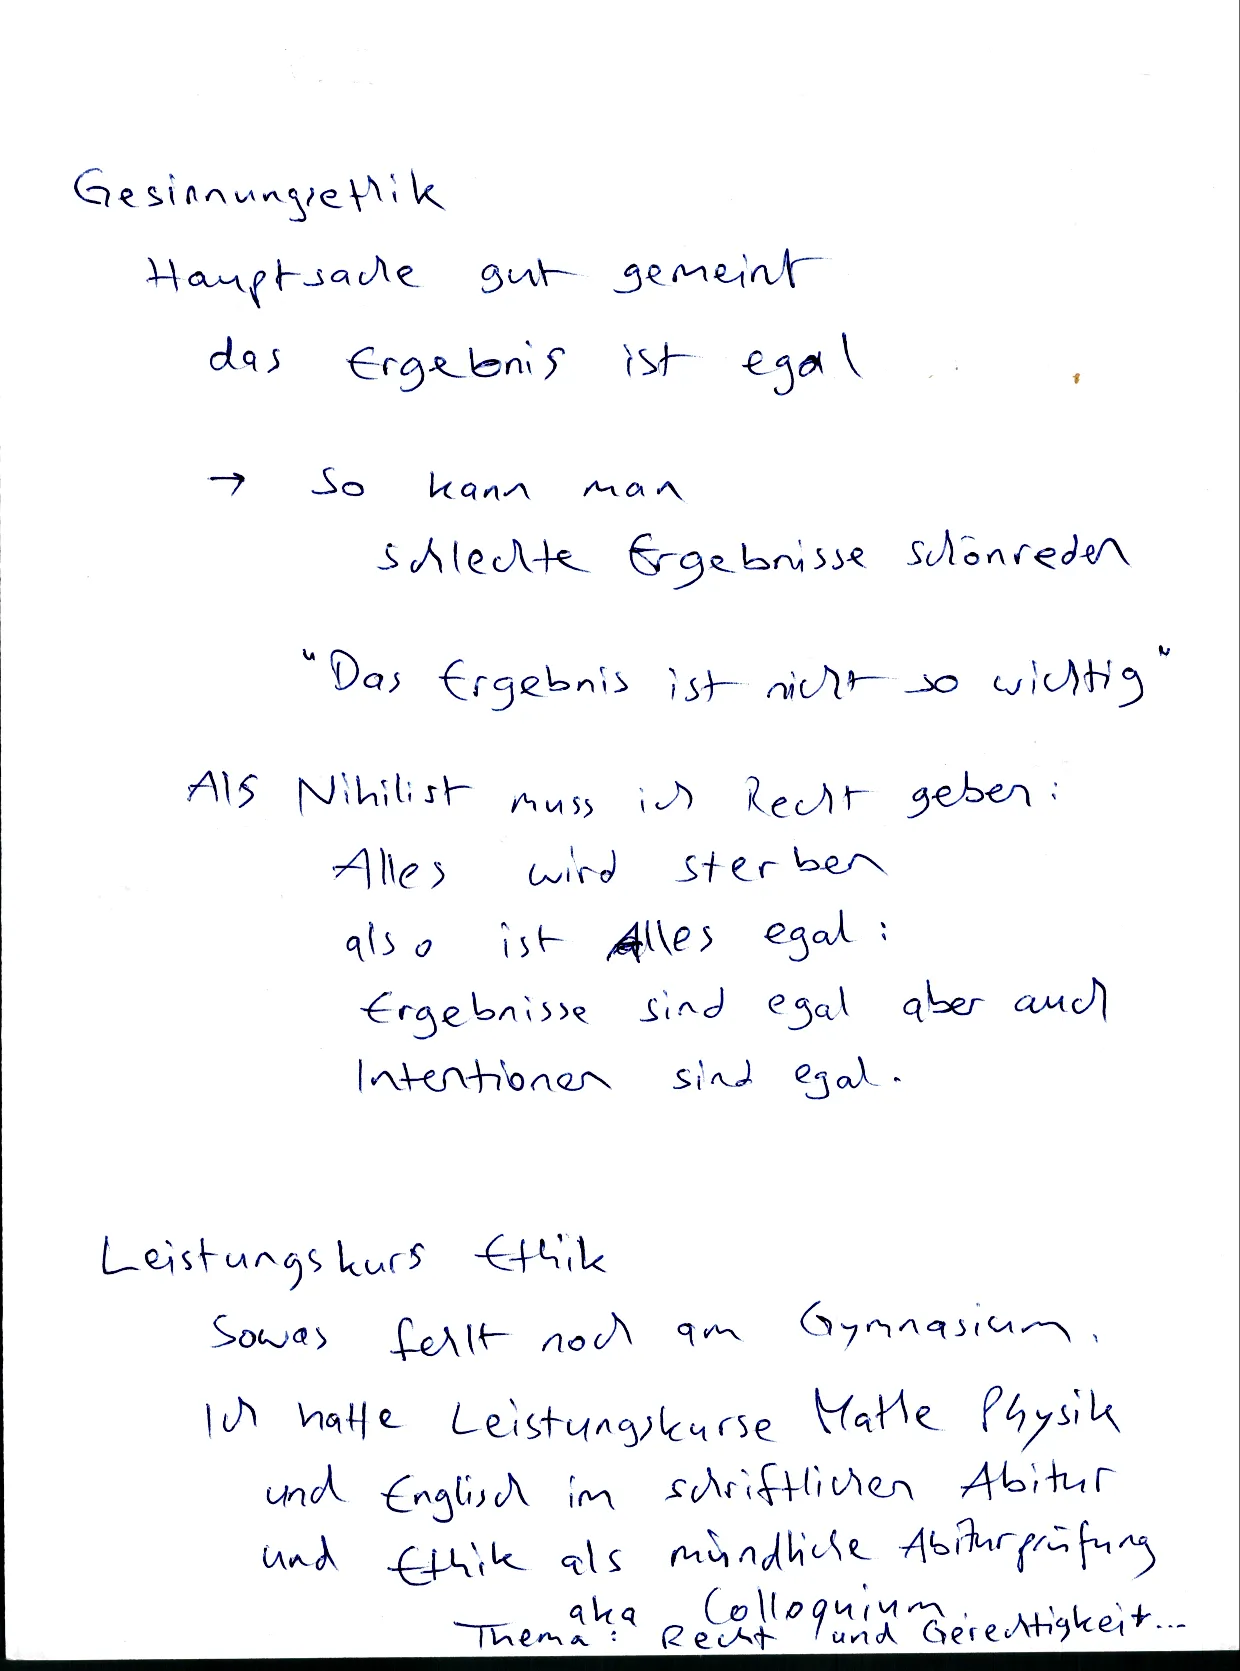 Gesinnungsethik
Hauptsache gut gemeint
das Ergebnis ist egal
→ So kann man
schlechte Ergebnisse schönreden
"Das Ergebnis ist nicht so wichtig"
Als Nihilist muss ich Recht geben:
Alles wird sterben
also ist Alles egal:
Ergebnisse sind egal aber auch
Intentionen sind egal.
Leistungskurs Ethik
Sowas fehlt noch am Gymnasium.
Ich hatte Leistungskurse Mathe Physik
und Englisch im schriftlichen Abitur
und Ethik als mündliche Abiturprüfung
aka Colloquium
Thema: Recht und Gerechtigkeit...